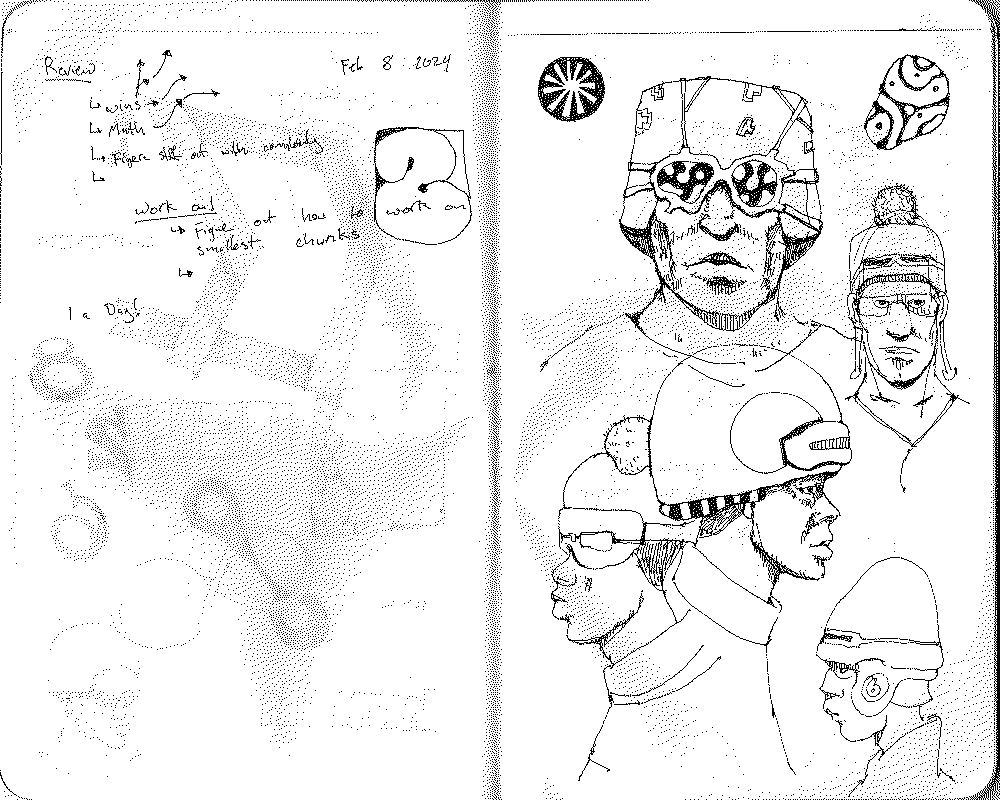 Review
Feb 8 2024
↳ wins
↳ Math
↳ Figure out with
↳
work out
↳ Figure out how to work on
smallest chunks
↳
1 a Day!
6